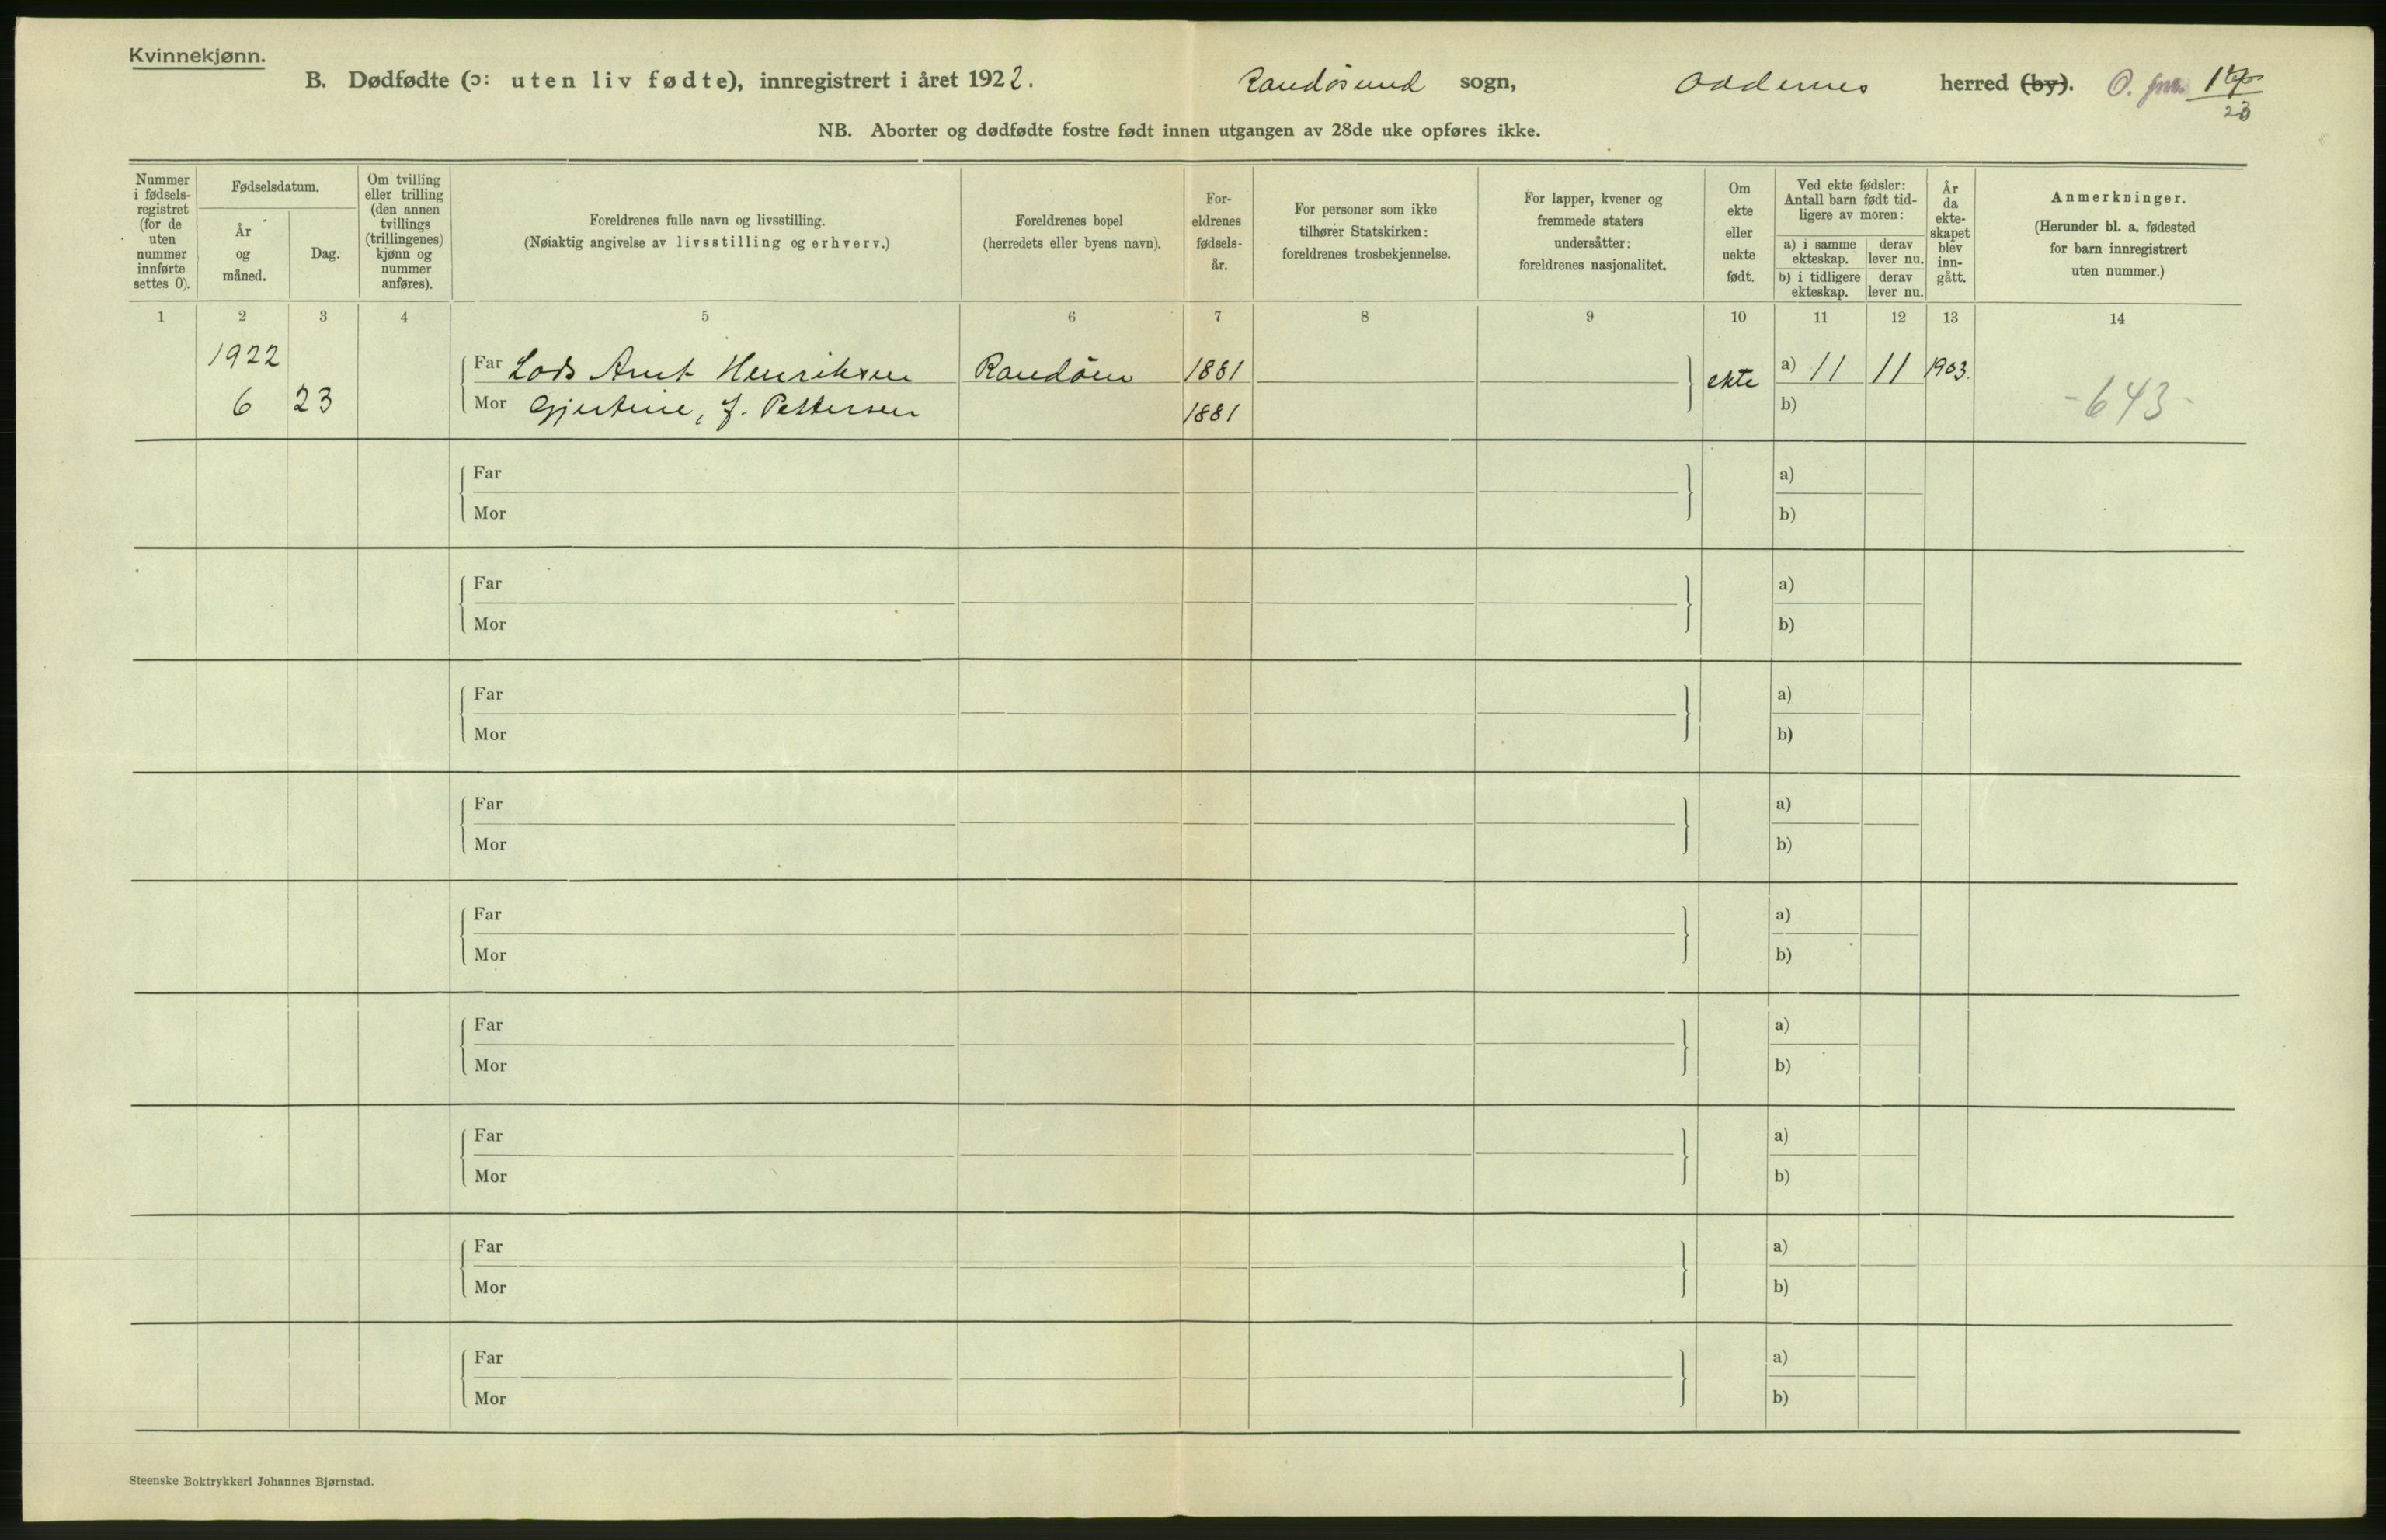 Kvinnekjønn.
B. Dødfødte (ɔ: uten liv fødte), innregistrert i året 1922. Randøsund sogn, Oddernes herred (by).
23
NB. Aborter og dødfødte fostre født innen utgangen av 28de uke opføres ikke.
Nummer i fødsels-registret (for de uten nummer innførte settes 0).
Fødselsdatum.
År og måned.
Dag.
Om tvilling eller trilling (den annen tvillings (trillingenes) kjønn og nummer anføres).
Foreldrenes fulle navn og livsstilling.
(Nøiaktig angivelse av livsstilling og erhverv.)
Foreldrenes bopel
(herredets eller byens navn).
For-eldrenes fødsels-år.
For personer som ikke tilhører Statskirken: foreldrenes trosbekjennelse.
For lapper, kvener og fremmede staters undersåtter: foreldrenes nasjonalitet.
Om ekte eller uekte født.
Ved ekte fødsler: Antall barn født tid-ligere av moren:
a) i samme ekteskap.
derav lever nu.
b) i tidligere ekteskap.
derav lever nu.
År da ekte-skapet blev inn-gått.
Anmerkninger.
(Herunder bl. a. fødested for barn innregistrert uten nummer.)
1 2 3 4 5 6 7 8 9 10 11 12 13 14
1922
Far Lods Arnt Henriksen Randøen 1881 ekte a) 11 11 1903.
6 23 Mor Gjertine, f. Pettersen 1881 b) -643-
Far a)
Mor b)
Far a)
Mor b)
Far a)
Mor b)
Far a)
Mor b)
Far a)
Mor b)
Far a)
Mor b)
Far a)
Mor b)
Far a)
Mor b)
Far a)
Mor b)
Steenske Boktrykkeri Johannes Bjørnstad.